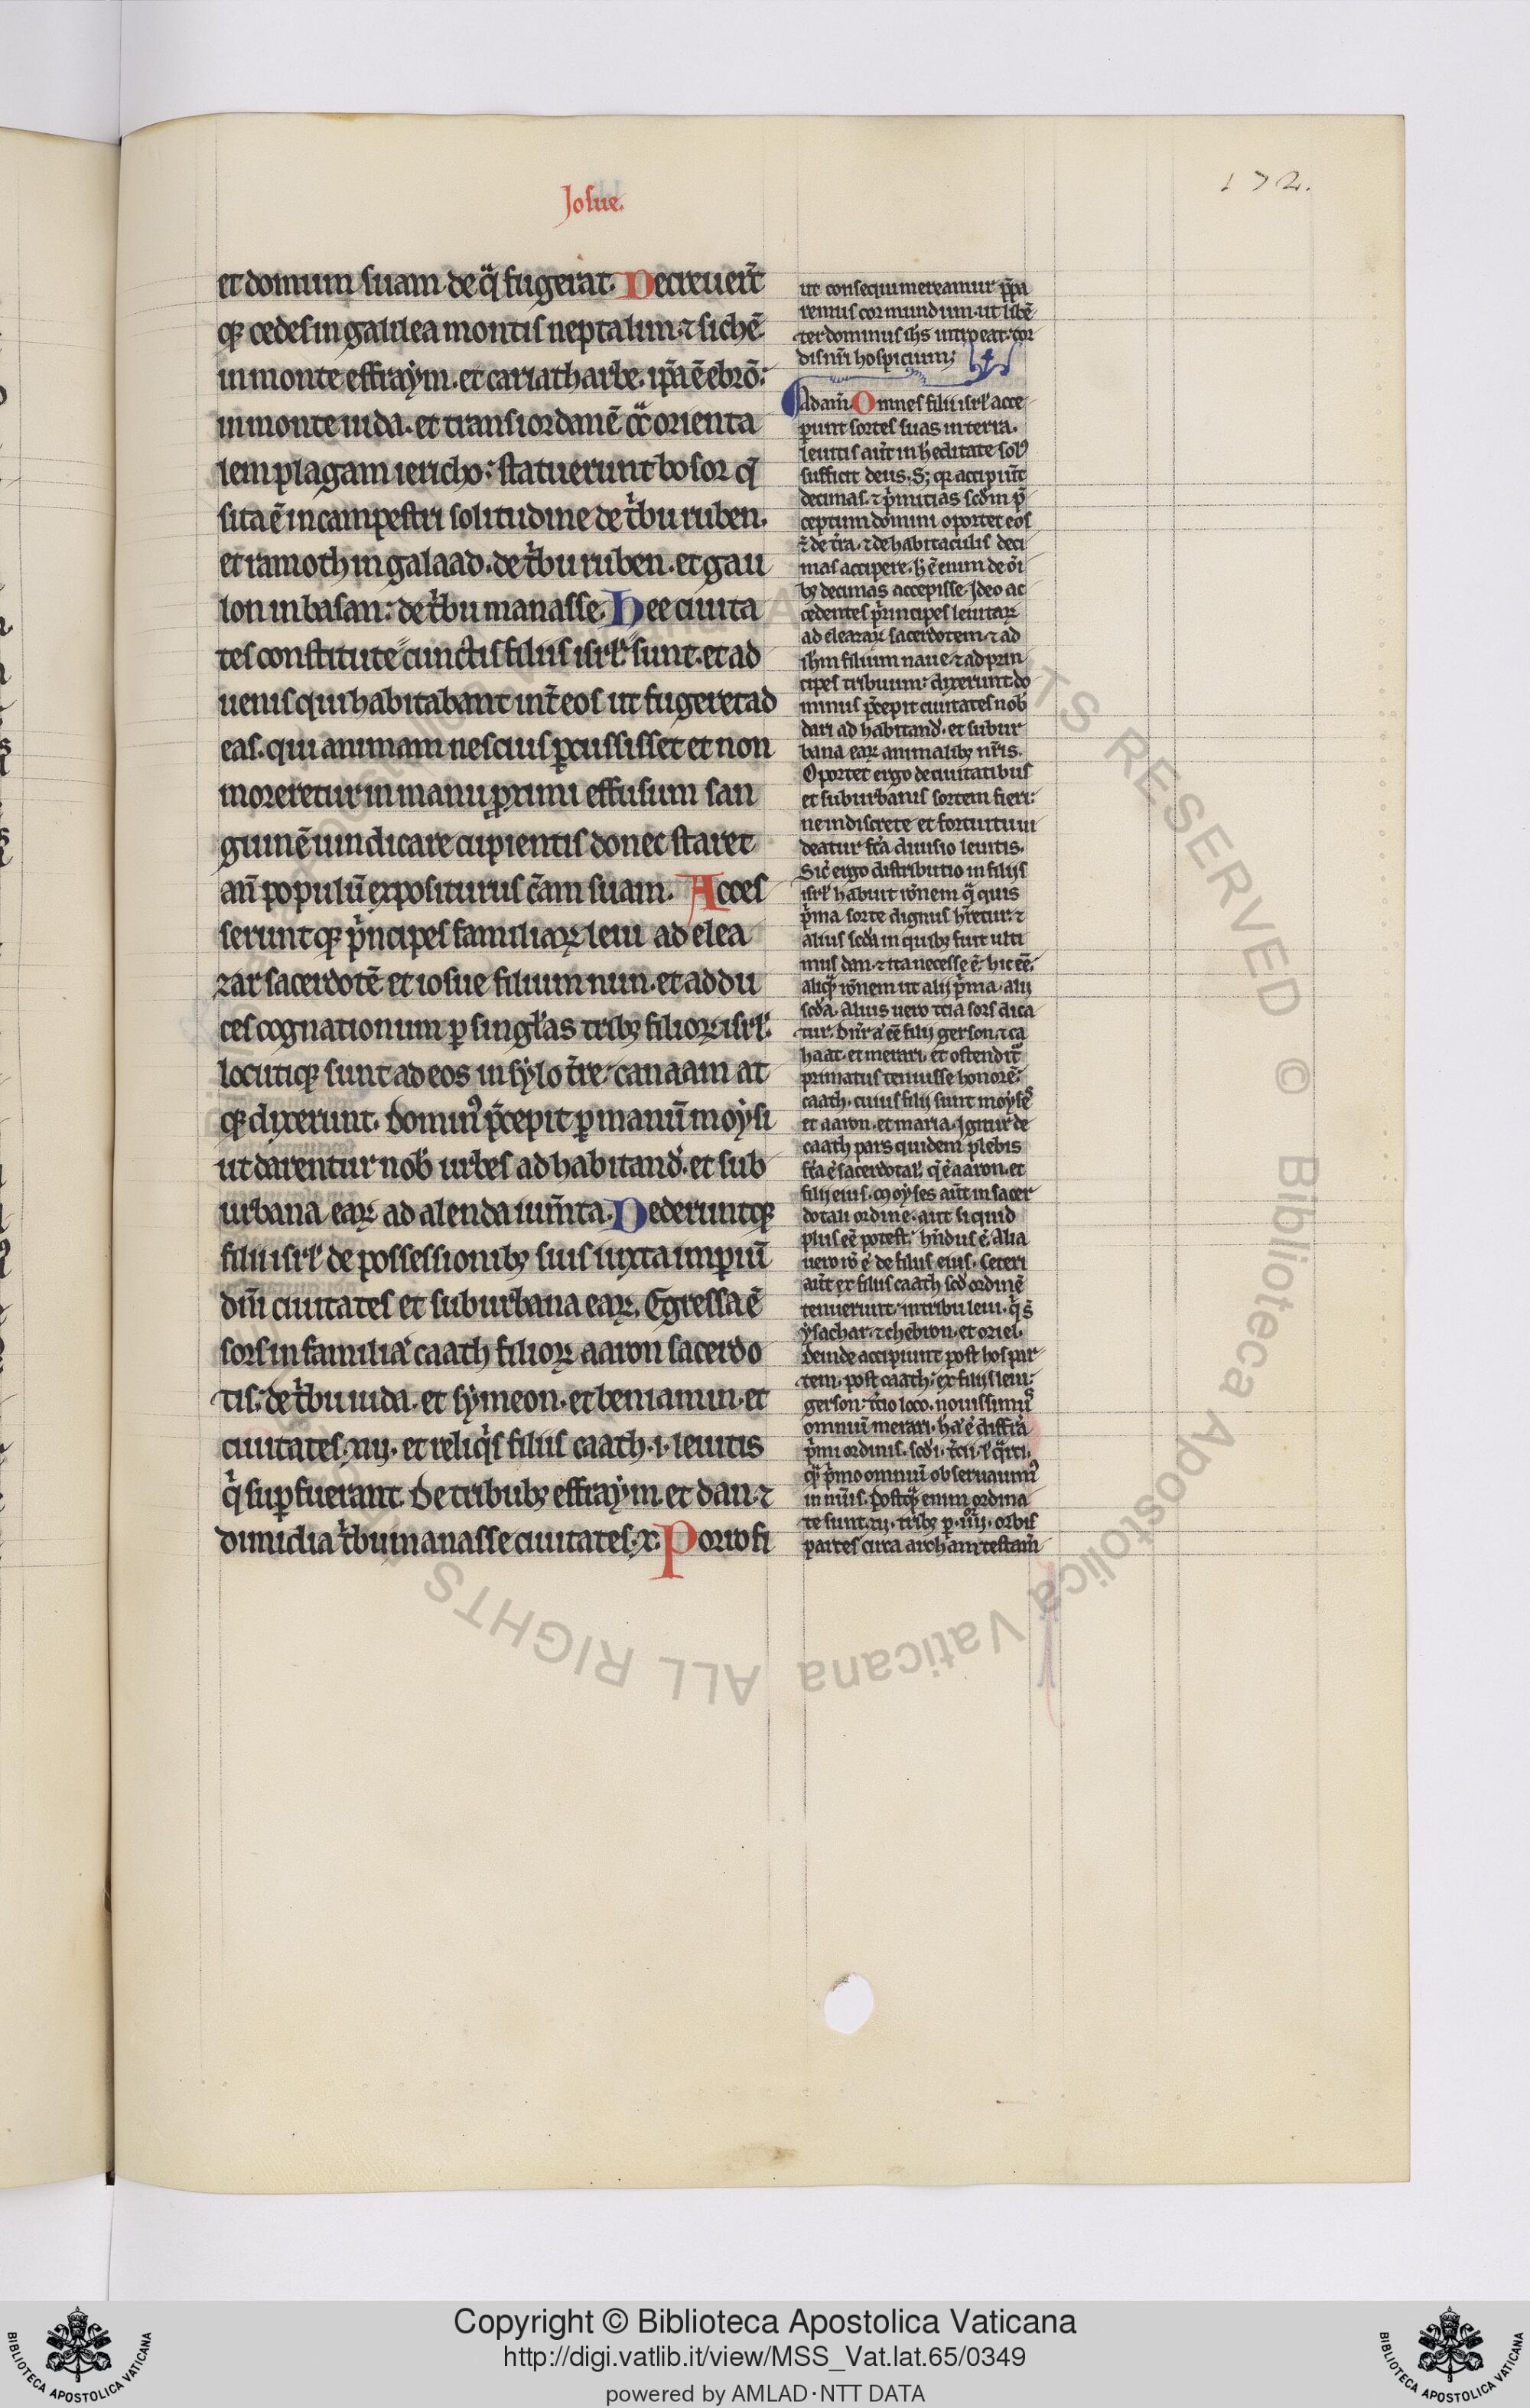 Josue.
172.
et domum suam de q̃ fugerat. Decreuer̃t
qꝫ cedes in galilea montis neptalim. ⁊ sichẽ
in monte effraym. et cariatharbe. ip̃a ẽ ebrõ.
in monte iuda. et trans iordanẽ cõ orienta
lem plagam iericho: statuerunt bosor q̃
sita ẽ in campestri solitudine de t̾bu ruben.
et ramoth in galaad. de t̾bu ruben. et gau
lon in basan: de t̾bu manasse. Hee ciuita
tes constitute cunctis filiis isrl̃ sunt. et ad
uenis qui habitabant int̾ eos ut fugeret ad
eas. qui animam nescius ꝑcussisset et non
moreretur in manu ꝓximi effusum san
guinẽ uindicare cupientis donec staret
an̄ populũ expositurus c̃am suam. Acces
serunt qꝫ p̾ncipes familiaꝝ leui ad elea
zar sacerdotẽ et iosue filium nun. et ad du
ces cognationum ꝑ singl̃as tribꝫ filioꝝ isrl̃.
locutiqꝫ sunt ad eos in sylo t̾re canaam at
qꝫ dixerunt. Dominꝰ p̃cepit ꝑ manũ moysi
ut darentur nob̃ urbes ad habitand̾. et sub
urbana eaꝝ ad alenda ium̃ta. Dederuntqꝫ
filii isrl̃ de possessionibꝫ suis iuxta imꝑiũ
dñi ciuitates et suburbana eaꝝ. Egressa ẽ
sors in familiã caath filioꝝ aaron sacerdo
tis: de t̾bu iuda. et symeon. et beniamin. et
ciuitates. xiij. et reliq̾s filiis caath. i. leuitis
q̾ suꝑfuerant. De tribubꝫ effraym. et dan. ⁊
dimidia t̾bu manasse ciuitates. x. Porro fi
ut consequi mereamur p̃pa
remus cor mundum. ut libẽ
ter dominus ih̃s introeat cor
dis nr̃i hospicium;
Adam̃. Omnes filii isrl̃ acce
perunt sortes suas in terra.
leuitis aut̃ in h̾editate solꝰ
sufficit deus. S; qꝛ accipiũt
decimas. ⁊ p̾mitias scd̃m p̃
ceptum domini oportet eos
⁊ de t̾ra. ⁊ de habitaculis deci
mas accipere. h̾ ẽ enim de õi
bꝫ decimas accepisse. Ideo ac
cedentes p̾ncipes leuitaꝝ
ad elearaꝝ sacerdotem. ⁊ ad
ih̃m filium naue. ⁊ ad prin
cipes tribuum: dixerunt do
minus p̃cepit ciuitates nob̃
dari ad habitand̾. et subur
bana eaꝝ animalibꝫ nr̃is.
Oportet ergo de ciuitatibus
et suburbanis sortem fieri:
ne indiscrete et fortuitu ui
deatur fc̃a diuisio leuitis.
Sic̾ ergo distributio in filijs
isrl̃ habuit rõnem q̃ quis
p̾ma sorte dignus h̾retur. ⁊
alius scd̃a in quibꝫ fuit ulti
mus dan. ⁊ ita necesse ẽ. hic eẽ.
aliq̃ rõnem ut alij p̾ma. alij
scd̃a. Alius uero t̾cia sors dica
tur. Dn̾ra eẽ filij gerson. ⁊ ca
haat. et merari. et ostendit̾
primatus tenuisse honorẽ
caath. cuius filij sunt moysẽs
et aaron. et maria. Igitur de
caath pars quidem plebis
fc̃a ẽ sacerdotal̾. q̾ ẽ aaron. et
filij eius. Moyses aut̃ in sacer
dotali ordine. aut si quid
plus eẽ potest. hñdus ẽ. Alia
uero rõ ẽ de filiis eius. Ceteri
aut̃ ex filiis caath scd̾ ordinẽ
tenuerunt. in tribu leui. q̾ s̃
ysachar. ⁊ chebron. et oriel.
Deinde accipiunt post hos par
tem. post caath: ex filijs leui:
gerson. t̾cio loco. nouissimꝰ
omniũ merari. hã ẽ diff̾ia
p̾mi ordinis. scd̾i. t̾cii. ⁊ q̾rti.
qꝫ p̾mo omniũ obseruauimꝰ
in nũis. postqꝫ enim ordina
te sunt. xij. tribꝫ ꝑ. iiij. orbis
partes circa archam testam̃
Copyright © Biblioteca Apostolica Vaticana
http://digi.vatlib.it/view/MSS_Vat.lat.65/0349
powered by AMLAD·NTT DATA
BIBLIOTECA APOSTOLICA VATICANA
BIBLIOTECA APOSTOLICA VATICANA
ALL RIGHTS RESERVED © Biblioteca Apostolica Vaticana